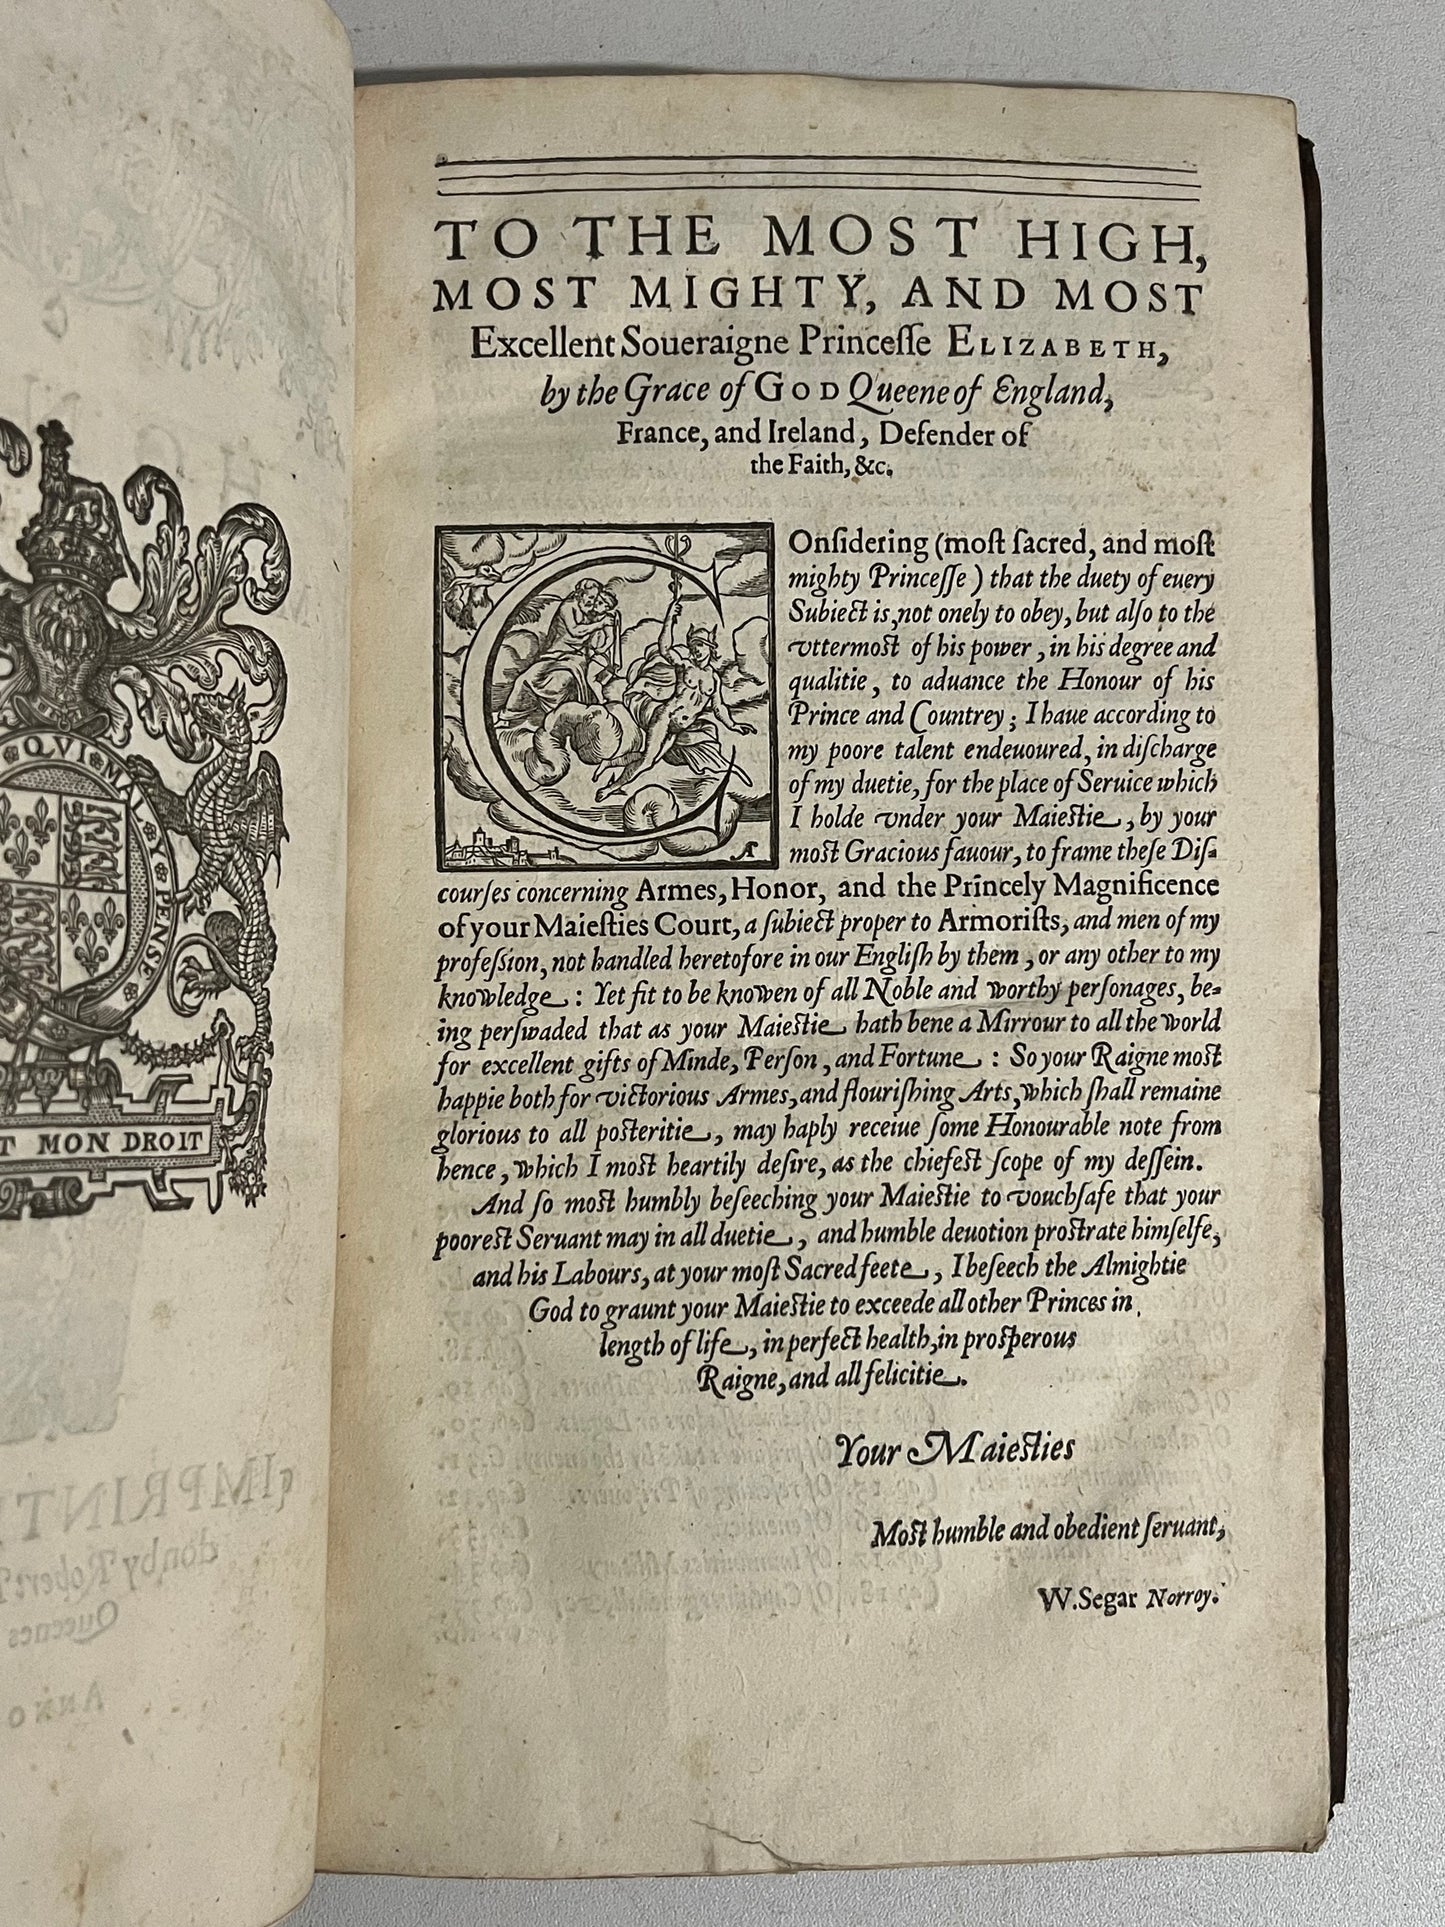 QVI MAL Y PENSE
T MON DROIT
IMPRINT
don by Robert
Queenes
ANNO
TO THE MOST HIGH,
MOST MIGHTY, AND MOST
Excellent Soueraigne Princeſſe ELIZABETH,
by the Grace of GOD Queene of England,
France, and Ireland, Defender of
the Faith, &c.
COnſidering (moſt ſacred, and moſt
mighty Princeſſe) that the duety of euery
Subiect is, not onely to obey, but alſo to the
vttermoſt of his power, in his degree and
qualitie, to aduance the Honour of his
Prince and Countrey; I haue according to
my poore talent endeuoured, in diſcharge
of my duetie, for the place of Seruice which
I holde vnder your Maieſtie, by your
moſt Gracious fauour, to frame theſe Diſ-
A
courſes concerning Armes, Honor, and the Princely Magnificence
of your Maieſties Court, a ſubiect proper to Armoriſts, and men of my
profeſsion, not handled heretofore in our Engliſh by them, or any other to my
knowledge: Yet fit to be knowen of all Noble and worthy perſonages, be-
ing perſwaded that as your Maieſtie hath bene a Mirrour to all the world
for excellent gifts of Minde, Perſon, and Fortune: So your Raigne moſt
happie both for victorious Armes, and flouriſhing Arts, which ſhall remaine
glorious to all poſteritie, may haply receiue ſome Honourable note from
hence, which I moſt heartily deſire, as the chiefeſt ſcope of my deſſein.
And ſo moſt humbly beſeeching your Maieſtie to vouchſafe that your
pooreſt Seruant may in all duetie, and humble deuotion proſtrate himſelfe,
and his Labours, at your moſt Sacred feete, I beſeech the Almightie
God to graunt your Maieſtie to exceede all other Princes in
length of life, in perfect health, in proſperous
Raigne, and all felicitie.
Your Maieſties
Moſt humble and obedient ſeruant,
W. Segar Norroy.